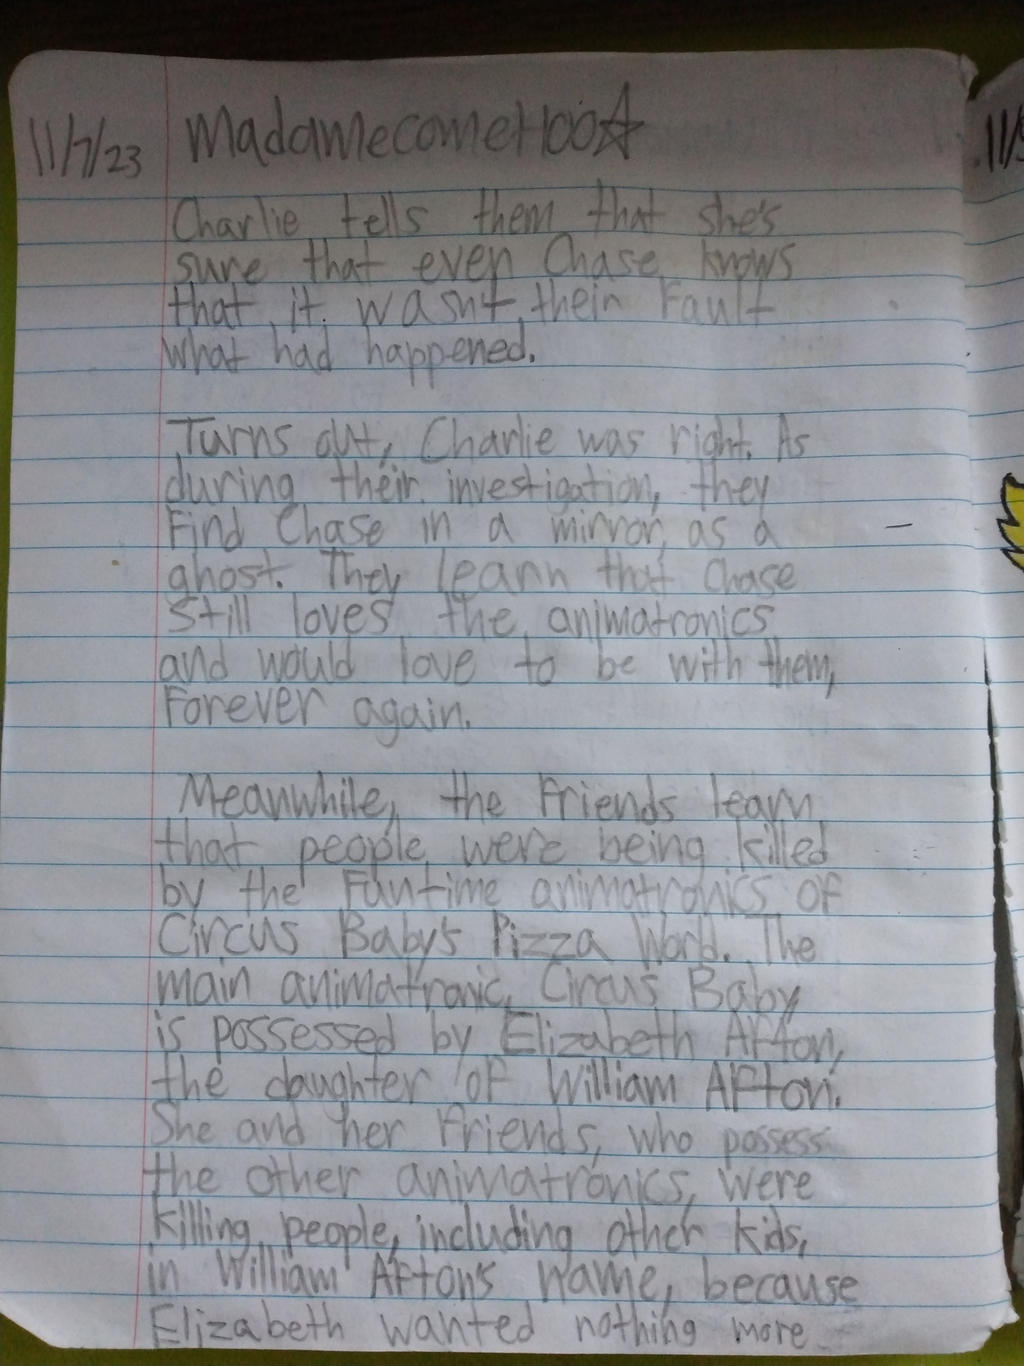 11/7/23 Madamecomet100☆
Charlie tells them that she's
sure that even Chase knows
that it wasn't their Fault
what had happened.
Turns out, Charlie was right. As
during their investigation, they
Find Chase in a mirror, as a
ghost. They learn that Chase
still loves the animatronics
and would love to be with them,
Forever again.
Meanwhile, the Friends learn
that people were being killed
by the Funtime animatronics of
Circus Baby's Pizza World. The
main animatronic, Circus Baby
is possessed by Elizabeth Afton,
the daughter of William Afton.
She and her Friends, who possess
the other animatronics, were
killing people, including other kids,
in William Afton's name, because
Elizabeth wanted nothing more